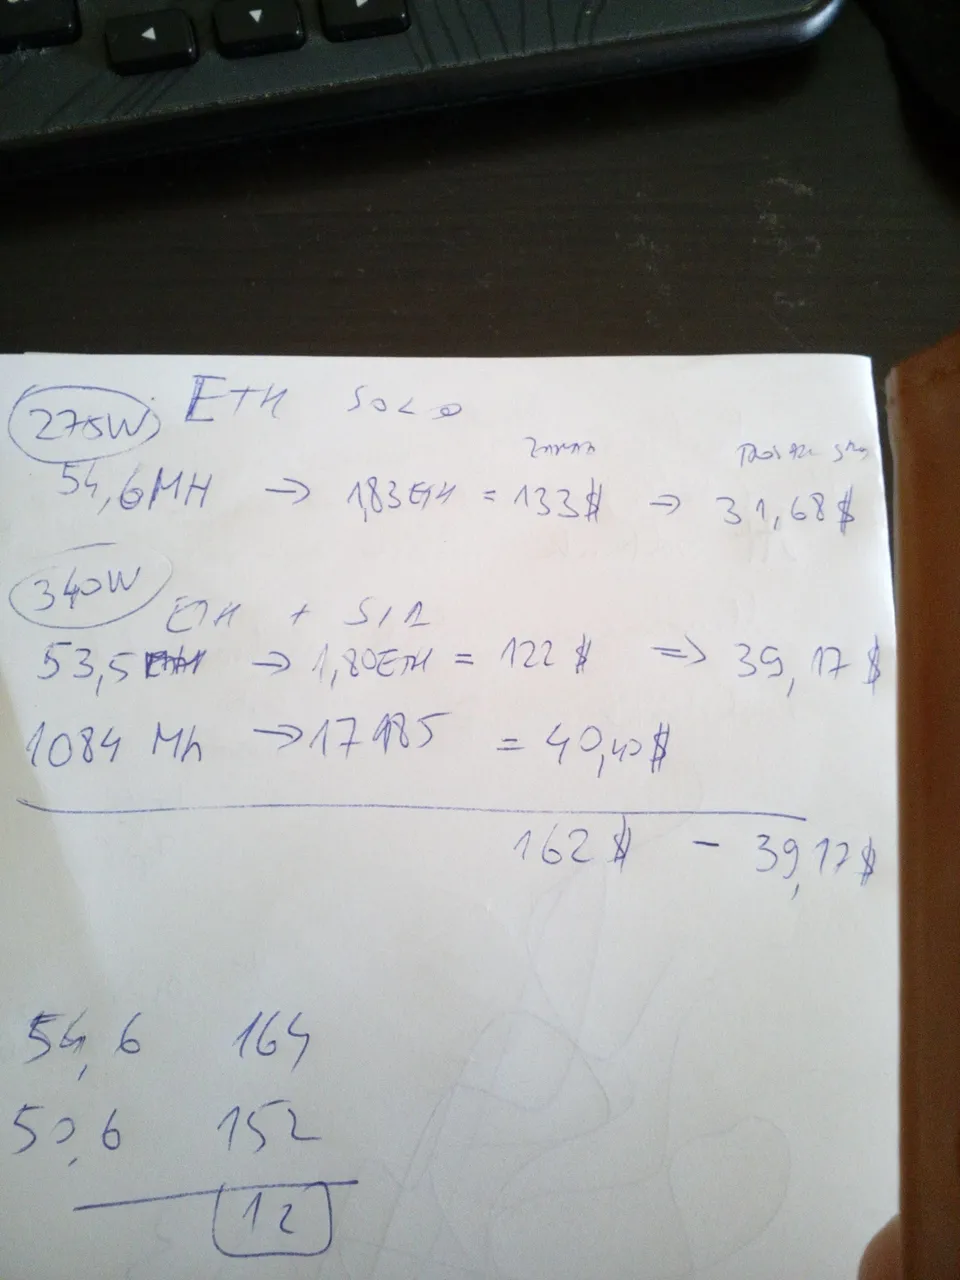 275W ETH SOLO
54,6MH → 1,83ETH = 133$ → 31,68$
340W
ETH + SIA
53,5 → 1,80ETH = 122$ ⇒ 39,17$
1084 Mh → 17185 = 40,40$
162$ - 39,17$
54,6 164
50,6 152
12